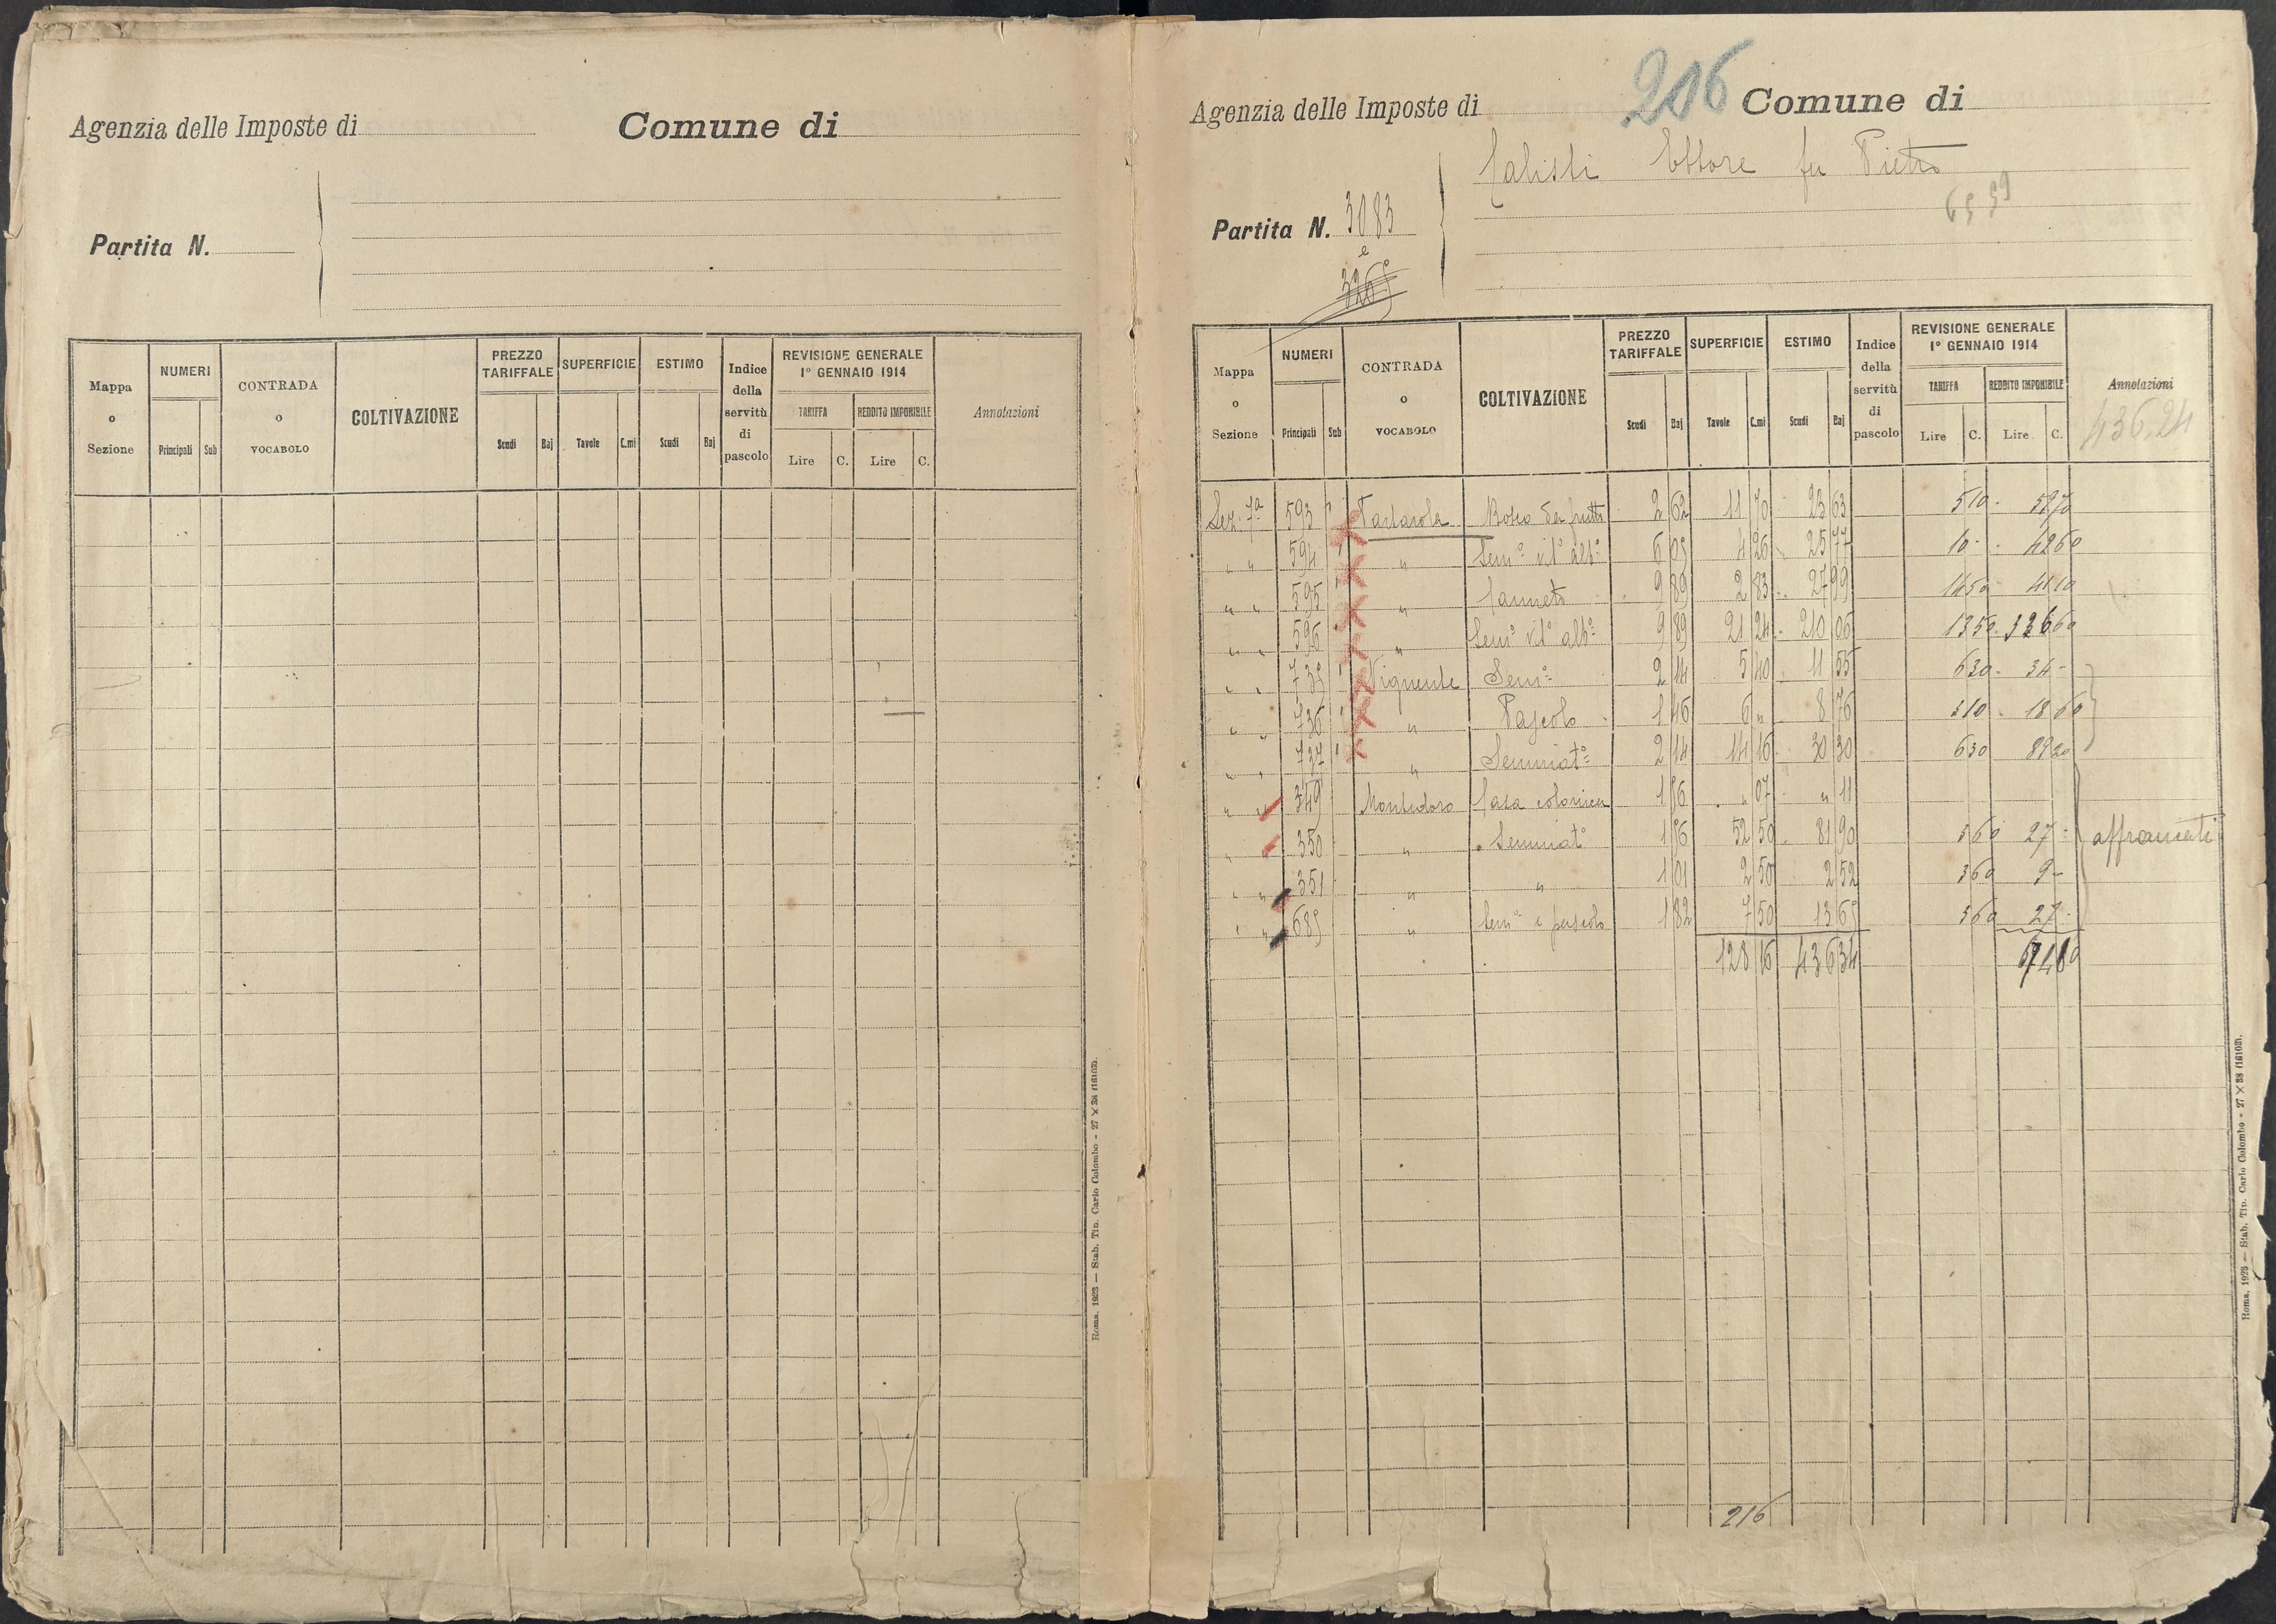 Agenzia delle Imposte di
Comune di
Partita N.
Mappa o Sezione
NUMERI
Principali Sub
CONTRADA o VOCABOLO
COLTIVAZIONE
PREZZO TARIFFALE
Scudi Baj
SUPERFICIE
Tavole C.mi
ESTIMO
Scudi Baj
Indice della servitù di pascolo
REVISIONE GENERALE
1° GENNAIO 1914
TARIFFA
Lire C.
REDDITO IMPONIBILE
Lire C.
Annotazioni
Roma, 1923 — Stab. Tip. Carlo Colombo - 27 × 38 (16103).
Agenzia delle Imposte di
216
Comune di
Calisti Ettore fu Pietro
Partita N. 3083
e
Mappa o Sezione
NUMERI
Principali Sub
CONTRADA o VOCABOLO
COLTIVAZIONE
PREZZO TARIFFALE
Scudi Baj
SUPERFICIE
Tavole C.mi
ESTIMO
Scudi Baj
Indice della servitù di pascolo
REVISIONE GENERALE
1° GENNAIO 1914
TARIFFA
Lire C.
REDDITO IMPONIBILE
Lire C.
Annotazioni
436,24
Sez. 1a 593 Bosco da frutto 2 62 11 70 23 63 510 5970
" " 594 " Sem° vit° alb° 6 05 4 26 25 77 10 4260
" " 595 " Canneto 9 89 2 83 27 99 1450 4110
" " 596 " Sem° vit° alb° 9 89 21 24 210 06 1350
" " 735 Sem° 2 14 5 40 11 55 630 34
" " 736 " Pascolo 1 46 6 " 8 76 310 1860
" " 737 " Seminat° 2 14 14 16 30 30 630 8920
" " 349 Montedoro Casa colonica 1 56 " 07 " 11
" " 350 " Seminat° 1 56 52 50 81 90 360 27
affrancati
" " 351 " " 1 01 2 50 2 52 360 9
" " 685 " Sem° e pascolo 1 82 7 50 13 65 360 27
128 16 436 34
216
Roma, 1923 — Stab. Tip. Carlo Colombo - 27 × 38 (16103).